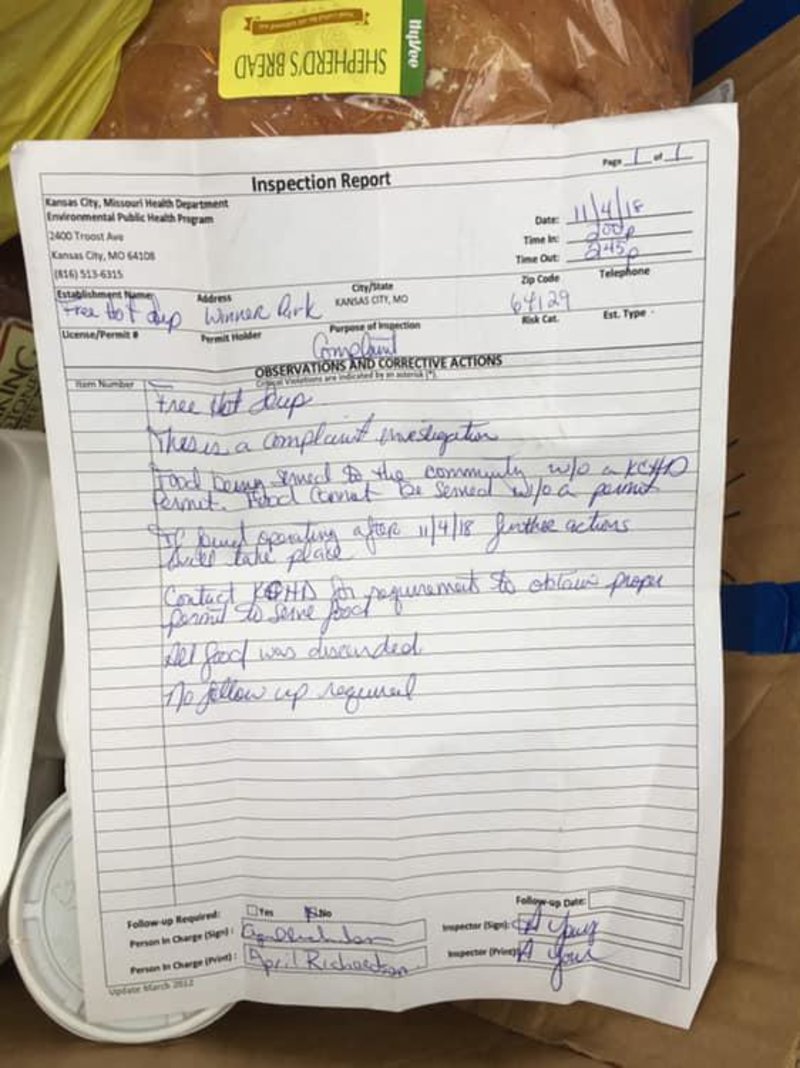 HyVee
SHEPHERD'S BREAD
Page 1 of 1
Inspection Report
Kansas City, Missouri Health Department
Environmental Public Health Program
2400 Troost Ave
Kansas City, MO 64108
(816) 513-6315
Date: 11/4/18
Time In: 200p
Time Out: 245p
Establishment Name: Address City/State Zip Code Telephone
Free Hot Soup Winner Park KANSAS CITY, MO 64129
License/Permit # Permit Holder Purpose of Inspection Risk Cat. Est. Type
Complaint
OBSERVATIONS AND CORRECTIVE ACTIONS
Item Number Critical Violations are indicated by an asterisk (*).
Free Hot Soup
This is a complaint investigation
Food being served to the community w/o a KCHD
Permit. Food cannot be served w/o a permit
If found operating after 11/4/18 further actions
will take place
Contact KCHD for requirements to obtain proper
permit to serve food
All food was discarded
No follow up required
Follow-up Required: Yes No Follow-up Date:
Person In Charge (Sign): Inspector (Sign): A Young
Person In Charge (Print): April Richardson Inspector (Print): A
Update March 2012